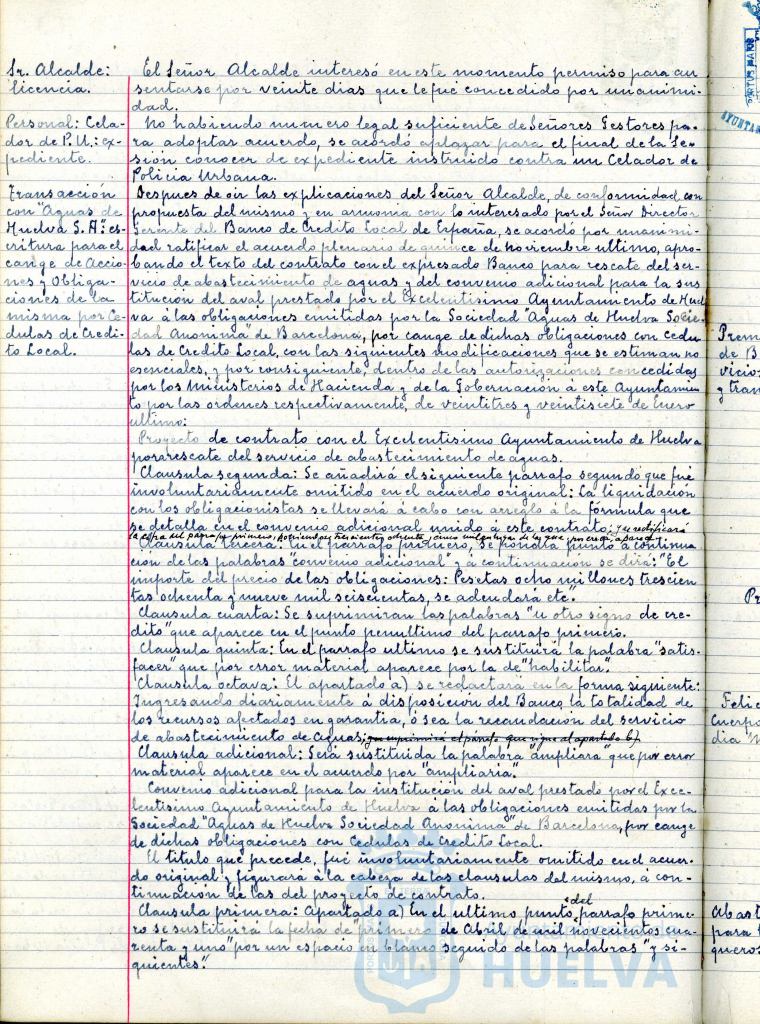 Sr. Alcalde:
licencia.
El Señor Alcalde interesó en este momento permiso para au
sentarse por veinte dias que le fué concedido por unanimi-
dad.
Personal: Cela-
dor de P. U.: ex-
pediente.
No habiendo numero legal suficiente de Señores Gestores pa-
ra adoptar acuerdo, se acordó aplazar para el final de la Se-
sión conocer de expediente instruido contra un Celador de
Policia Urbana.
Transacción
con "Aguas de
Huelva S. A": es-
critura para el
cange de Accio-
nes y Obliga-
ciones de la
misma por Ce-
dulas de Credi-
to Local.
Despues de oir las explicaciones del Señor Alcalde, de conformidad con
propuesta del mismo y en armonia con lo interesado por el Señor Director
Gerente del Banco de Credito Local de España, se acordó por unanimi-
dad ratificar el acuerdo plenario de quince de noviembre ultimo, apro-
bando el texto del contrato con el expresado Banco para rescate del ser-
vicio de abastecimiento de aguas y del convenio adicional para la sus
titucion del aval prestado por el Excelentisimo Ayuntamiento de Huel
va á las obligaciones emitidas por la Sociedad "Aguas de Huelva Socie-
dad Anonima" de Barcelona, por cange de dichas obligaciones con Cedu-
las de Credito Local, con las siguientes modificaciones que se estiman no
esenciales, y por consiguiente, dentro de las autorizaciones concedidas
por los Ministerios de Hacienda y de la Gobernación á este Ayuntamien
to por las ordenes respectivamente, de veintitres y veintisiete de Enero
ultimo:
Proyecto de contrato con el Excelentisimo Ayuntamiento de Huelva
para rescate del servicio de abastecimiento de aguas.
Clausula segunda: Se añadirá el siguiente parrafo segundo que fué
involuntariamente omitido en el acuerdo original: La liquidacion
con los obligacionistas se llevará á cabo con arreglo á la fórmula que
se detalla en el convenio adicional unido á este contrato; y se rectificará
la cifra del parrafo primero,
Clausula tercera: En el parrafo primero, se pondrá punto á continua
ción de las palabras "convenio adicional" y á continuacion se dirá: "El
importe del precio de las obligaciones: Pesetas ocho millones trescien
tas ochenta y nueve mil seiscientas, se adeudará etc".
Clausula cuarta: Se suprimiran las palabras "u otro signo de cre-
dito" que aparece en el punto penultimo del parrafo primero.
Clausula quinta: En el parrafo ultimo se sustituirá la palabra "satis-
facer" que por error material aparece por la de "habilitar".
Clausula octava: El apartado a) se redactará en la forma siguiente:
Ingresando diariamente á disposicion del Banco la totalidad de
los recursos afectados en garantia, ó sea la recaudación del servicio
de abastecimiento de aguas; que suprimirá el parrafo que sigue al apartado b)
Clausula adicional: Será sustituida la palabra "ampliara" que por error
material aparece en el acuerdo por "ampliaria".
Convenio adicional para la institucion del aval prestado por el Exce-
lentisimo Ayuntamiento de Huelva á las obligaciones emitidas por la
Sociedad "Aguas de Huelva Sociedad Anonima" de Barcelona, por cange
de dichas obligaciones con Cedulas de Credito Local.
El titulo que precede, fué involuntariamente omitido en el acuer-
do original y figurará á la cabeza de las clausulas del mismo, á con-
tinuación de las del proyecto de contrato.
Clausula primera: Apartado a) En el ultimo punto, del parrafo prime-
ro se sustituirá la fecha de "primero de Abril de mil novecientos cua-
renta y uno" por un espacio en blanco seguido de las palabras "y si-
guientes".
HUELVA
Prem
de B
vicio
y tran
Pr
Felic
Cuerpo
dia "M
Abast
para l
queros